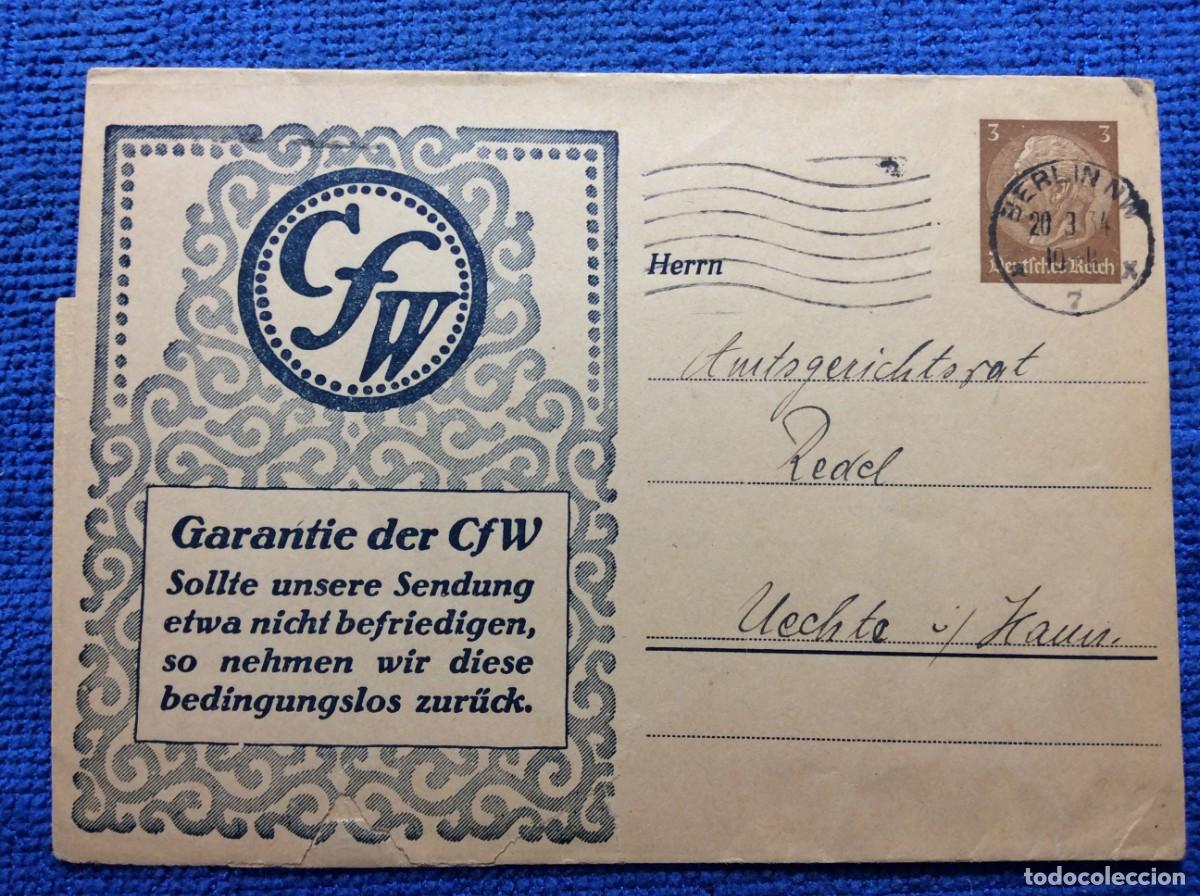 CfW
Garantie der CfW
Sollte unsere Sendung
etwa nicht befriedigen,
so nehmen wir diese
bedingungslos zurück.
3 3
Deutsches Reich
BERLIN NW
20 3 34
7
Herrn
Amtsgerichtsrat
Redel
Uechte i/ Hann.
todocoleccion
todocoleccion.net